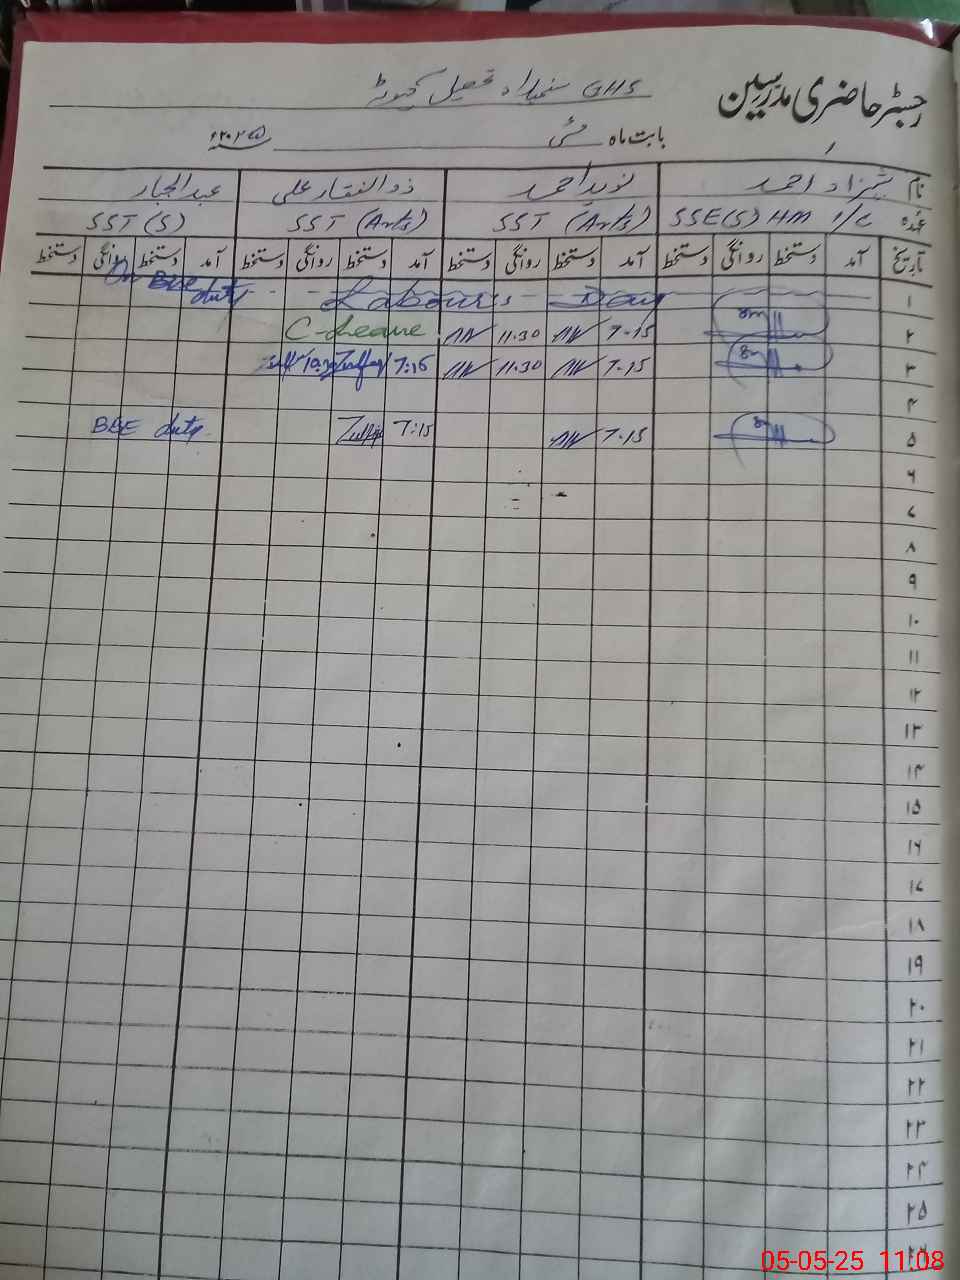 رجسٹر حاضری مدرسین
GHS تحصیل کہوٹہ
بابت ماہ مئی ۲۰۲۵ء
نام شہزاد احمد نوید احمد ذوالفقار علی عبدالجبار
عہدہ SSE(S) HM I/C SST (Arts) SST (Arts) SST (S)
تاریخ آمد دستخط روانگی دستخط آمد دستخط روانگی دستخط آمد دستخط روانگی دستخط آمد دستخط روانگی دستخط
۱ Labour's Day On BISE duty
۲ 7-15 11.30 C-Leave
۳ 7-15 11.30 7:15
۴
۵ 7-15 7:15 BISE duty
۶
۷
۸
۹
۱۰
۱۱
۱۲
۱۳
۱۴
۱۵
۱۶
۱۷
۱۸
۱۹
۲۰
۲۱
۲۲
۲۳
۲۴
۲۵
۲۶
05-05-25 11:08